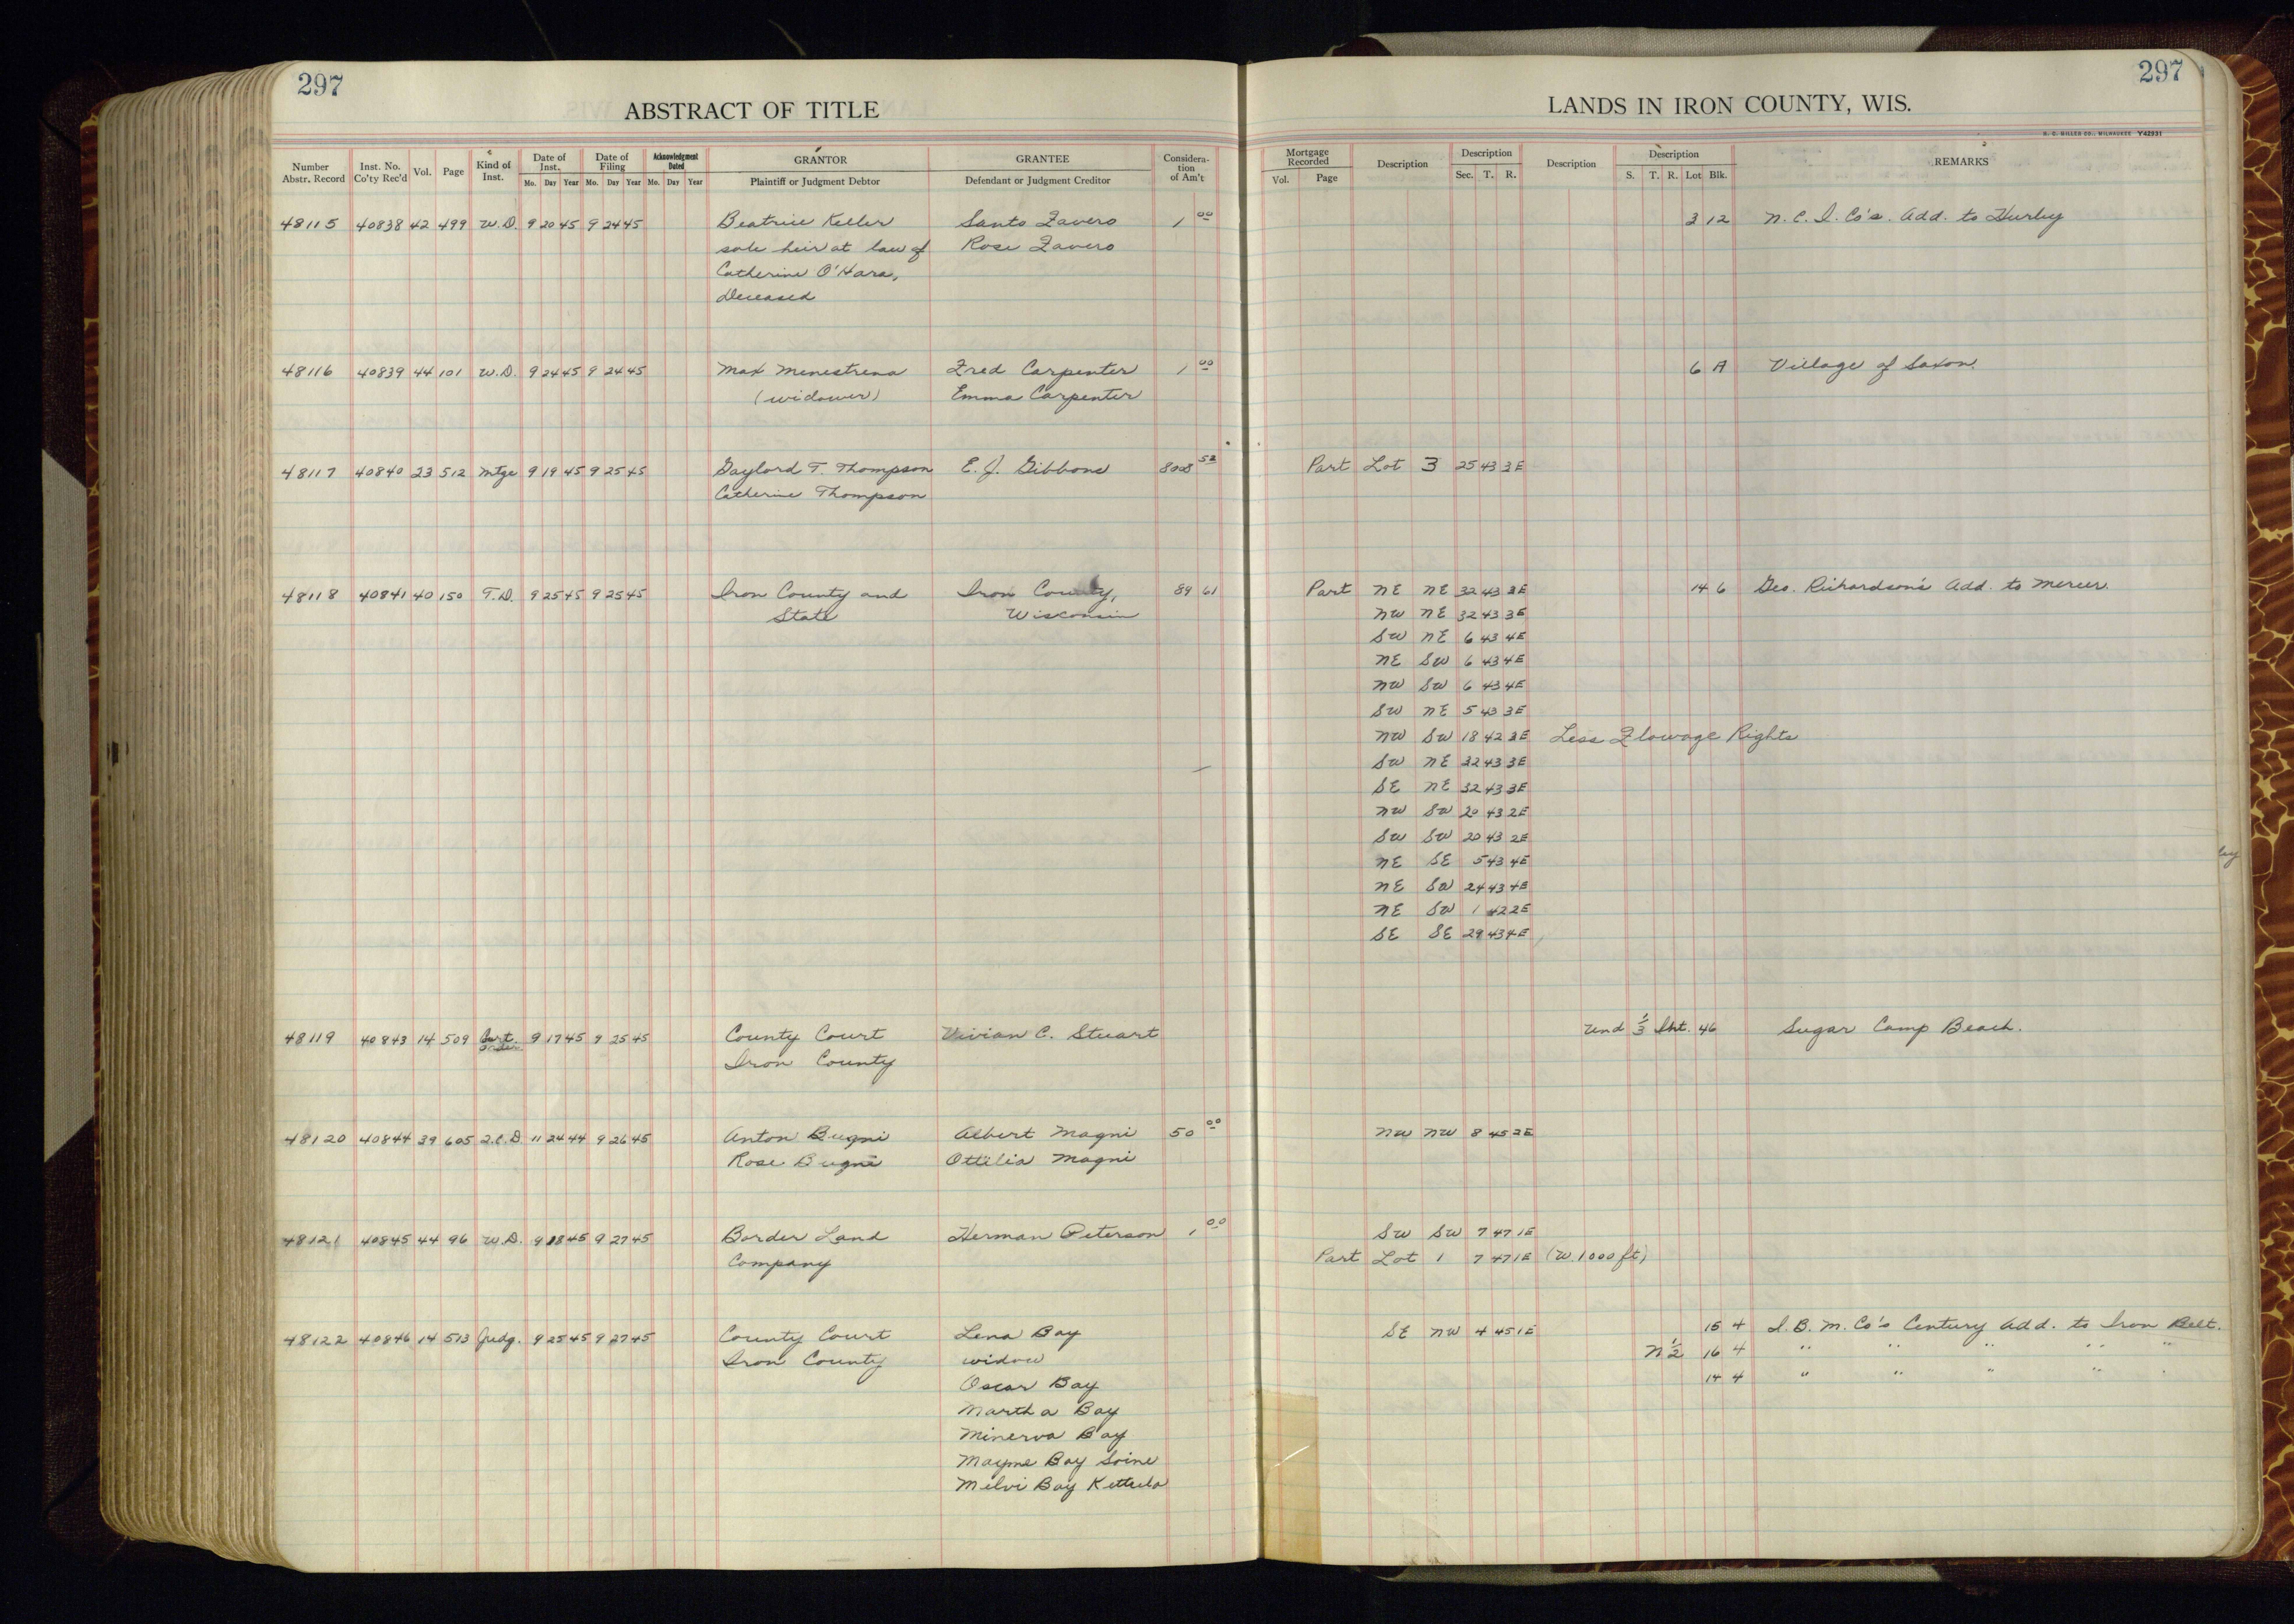 297
ABSTRACT OF TITLE
Number Abstr. Record Inst. No. Co'ty Rec'd Vol. Page Kind of Inst. Date of Inst. Mo. Day Year Date of Filing Mo. Day Year Acknowledgment Dated Mo. Day Year GRANTOR Plaintiff or Judgment Debtor GRANTEE Defendant or Judgment Creditor Consideration of Am't
48115 40838 42 499 W.D. 9 20 45 9 24 45 Beatrice Keller Santo Zavero 1 00
sole heir at law of Rose Zavero
Catherine O'Hara,
deceased
48116 40839 44 101 W.D. 9 24 45 9 24 45 Max Menestrena Fred Carpenter 1 00
(widower) Emma Carpenter
48117 40840 23 512 Mtge 9 19 45 9 25 45 Gaylord T. Thompson E. J. Gibbons 808 52
Catherine Thompson
48118 40841 40 150 T.D. 9 25 45 9 25 45 Iron County and Iron County, 89 61
State Wisconsin
48119 40843 14 509 9 17 45 9 25 45 County Court Vivian C. Stuart
Iron County
48120 40844 39 605 Q.C.D. 11 24 44 9 26 45 Anton Bugni Albert Magni 50 00
Rose Bugni Ottilia Magni
48121 40845 44 96 W.D. 9 18 45 9 27 45 Border Land Herman Peterson 1 00
Company
48122 40846 14 513 Judg. 9 25 45 9 27 45 County Court Lena Bay
Iron County widow
Oscar Bay
Martha Bay
Minerva Bay
Mayme Bay Soine
Melvi Bay Kettula
297
LANDS IN IRON COUNTY, WIS.
H. C. MILLER CO., MILWAUKEE Y42931
Mortgage Recorded Vol. Page Description Description Sec. T. R. Description Description S. T. R. Lot Blk. REMARKS
3 12 N. C. I. Co's. Add. to Hurley
6 A Village of Saxon.
Part Lot 3 25 43 3E
Part NE NE 32 43 3E 14 6 Geo. Richardson's Add. to Mercer.
NW NE 32 43 3E
SW NE 6 43 4E
NE SW 6 43 4E
NW SW 6 43 4E
SW NE 5 43 3E
NW SW 18 42 3E Less Flowage Rights
SW NE 32 43 3E
SE NE 32 43 3E
NW SW 20 43 2E
SW SW 20 43 2E
NE SE 5 43 4E
NE SW 24 43 4E
NE SW 1 42 2E
SE SE 29 43 4E
Und 1/3 Int. 46 Sugar Camp Beach.
NW NW 8 45 2E
SW SW 7 47 1E
Part Lot 1 7 47 1E (W. 1000 ft)
SE NW 4 45 1E 15 4 I. B. M. Co's Century Add. to Iron Belt.
N 1/2 16 4 " " " " "
14 4 " " " " "